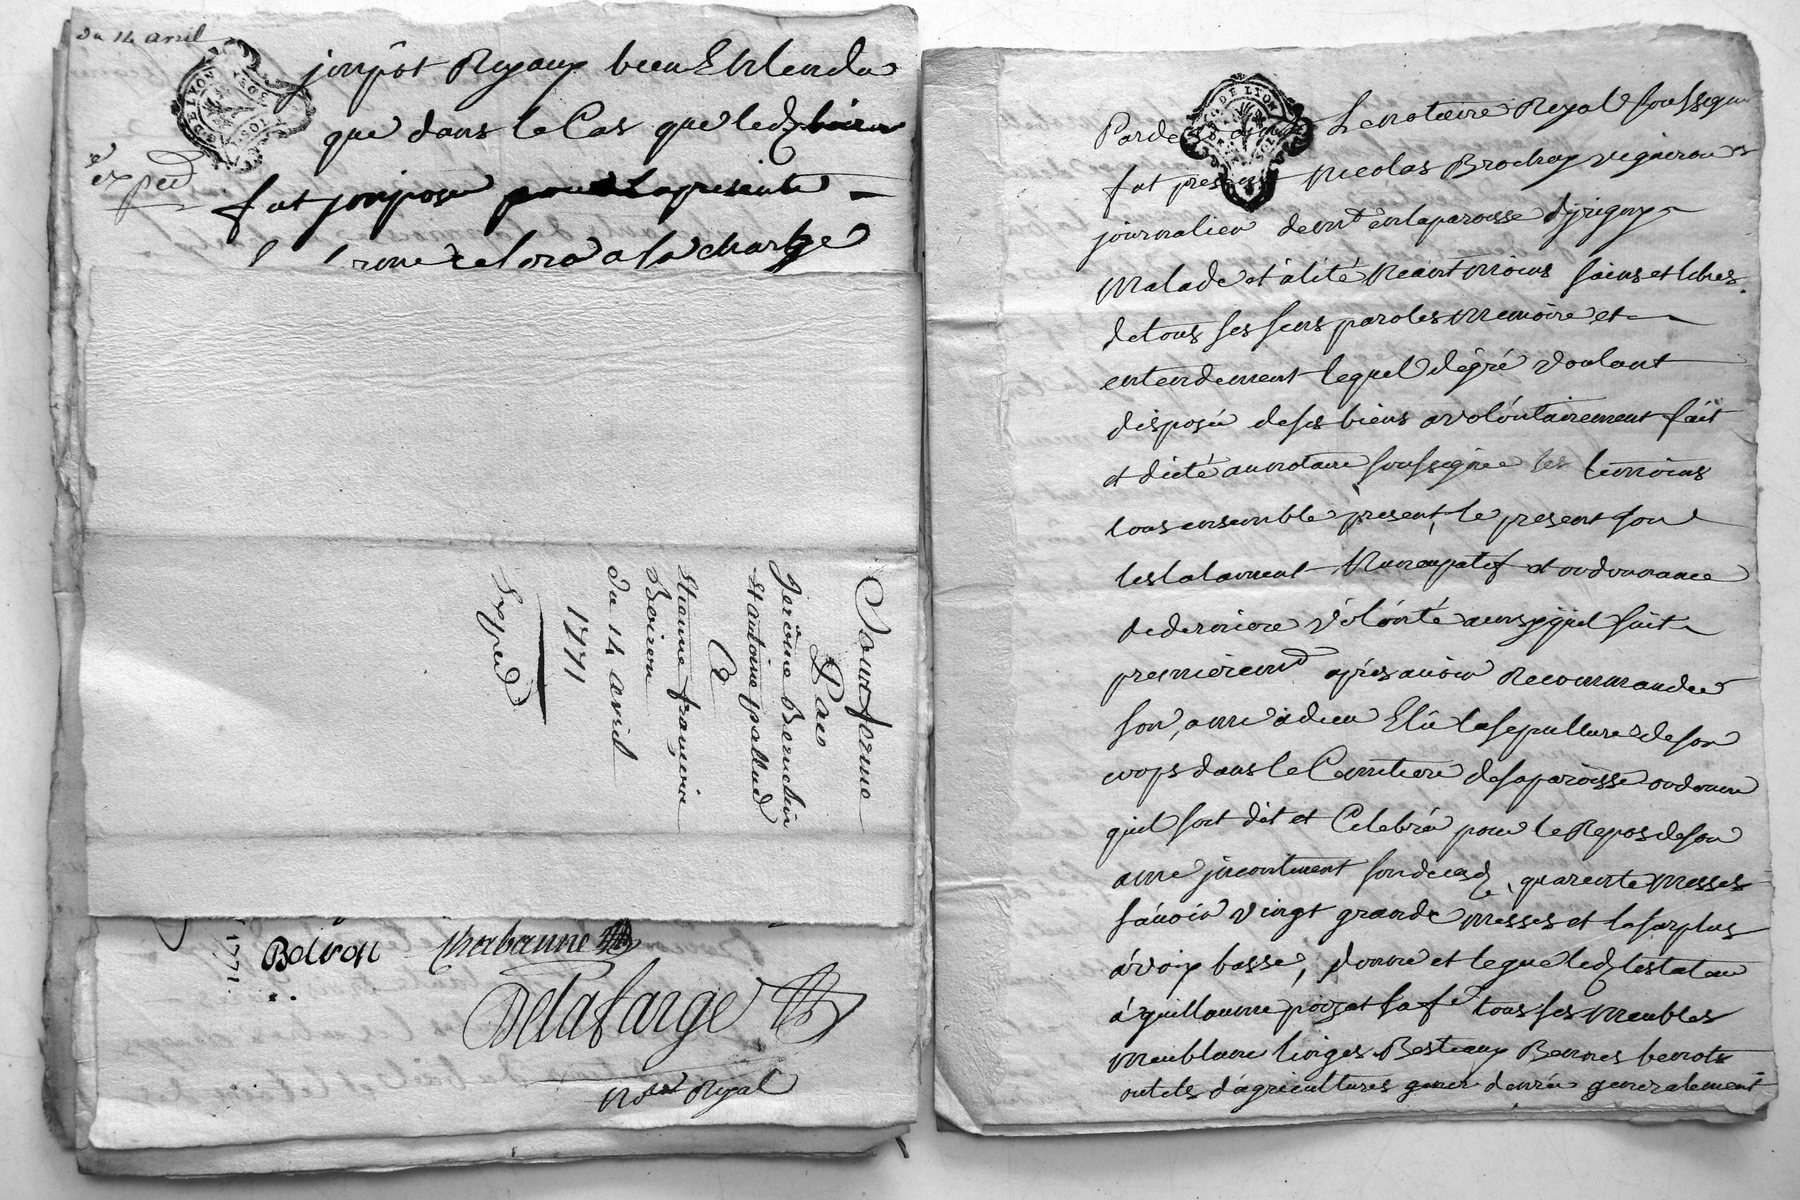 du 14 avril
GEN. DE LYON
DEUX SOLS
jmpôt Royaux bien Entendu
que dans le Cas que led boiron
Exped
fut jmposé pour la présente
ferme cel sera a la charge
Sousferme
Par
Jerôme Bernelin
et antoine pallud
A
Etienne françois
Boiron
Du 14 avril
1771
Exped
1771
Boiron Chabanne
Delafarge
Nore Royal
GEN. DE LYON
Pardevant Le notaire Royal soussigné
fut present Nicolas Brochay vigneron et
journalier demt en la paroisse dyrigny
malade et alité Neantmoins sains et libres
de tous ses sens paroles memoire et
entendement lequel dégré voulant
disposer de ses biens a volontairement fait
et dicté au notaire soussigné les temoins
tous ensemble present, le present son
testatament Nuncupatif et ordonnance
de derniere vólónté ainsy quil suit
premierement aprés avoir Recommandé
son ame à dieu Elû la sepulture de son
corps dans le Cimitiere de sa paroisse ordonne
quil soit dit et Celebré pour le Repos de son
ame jncontinent son deced, quarente Messes
sávoir vingt grande messes et le surplus
à voix basse, donne et legue led testateur
á guillaume poizat sa fe tous ses Meubles
Meublans linges Bestiaux Bennes benots
outils dágricultures generalement